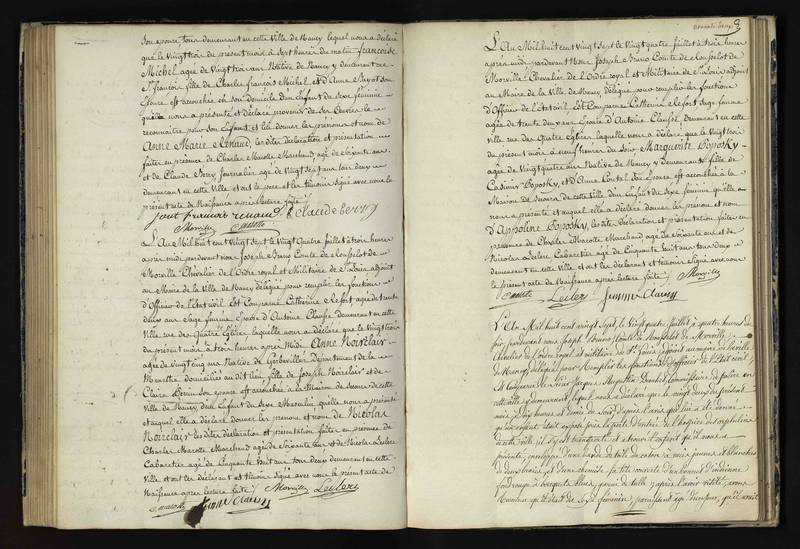 Son epouse, tous demeurant en cette Ville de Nancy lequel nous a déclaré
que le Vingt trois du présent mois à sept heures du matin françoise
Michel agée de Vingt trois ans Native de Nancy y demeurant rue
St françois fille de Charles françois Michel et d'Anne
Epouse est accouchée en son domicile d'un Enfant du sexe féminin
qu'il nous a présenté et déclaré provenir de ses Œuvres le
reconnaître pour son Enfant et lui donner les prénoms et nom de
Anne Marie Renaud, les dites déclaration et présentation
faites en présence de Charles Marotte Marchand, agé de Soixante ans
et de Claude Bery Journalier agé de Vingt sept ans tous deux
demeurant en cette Ville et ont le père et les témoins signé avec nous le
présent acte de Naissance après lecture faite
jean francois renaud Claude bery
Morville Marotte
L'An Mil huit cent Vingt Sept le Vingt Quatre Juillet à trois heures
après midi pardevant nous Joseph Bruno Comte de
Morville Chevalier de l'Ordre royal et Militaire de St Louis, adjoint
au Maire de la Ville de Nancy Délégué pour remplir les fonctions
d'Officier de l'Etat civil Est Comparue Catherine Refort agée de trente
deux ans Sage femme Epouse d'Antoine Clausse demeurant en cette
Ville rue des Quatre Eglises, laquelle nous a déclaré que le Vingt trois
du présent mois à trois heures après Midi Anne Noirclair
agée de vingt cinq ans Native de Gerbeviller Département de la
Meurthe domiciliée au dit lieu, fille de Joseph Noirclair et de
Claire son épouse est accouchée à la Maison de Secours de cette
Ville de Nancy d'un Enfant du Sexe Masculin qu'elle nous a présenté
et auquel elle a déclaré donner les prénom et nom de Nicolas
Noirclair les dites déclaration et présentation faites en présence de
Charles Marotte Marchand agé de Soixante ans et de Nicolas Leclere
Cabaretier agé de Cinquante huit ans tous deux demeurant en cette
Ville et ont les déclarant et témoins Signé avec nous le présent acte de
Naissance après lecture faite Morville Leclerc
Marotte femme Clauss
L'An Mil huit cent vingt Sept le Vingt quatre Juillet à trois heures
après midi pardevant Nous Joseph Bruno Comte de
Morville Chevalier de l'Ordre royal et Militaire de St Louis adjoint
au Maire de la Ville de Nancy délégué pour remplir les fonctions
d'Officier de l'Etat civil Est Comparue Catherine Refort Sage femme
agée de trente deux ans Epouse d'Antoine Clausse, demeurant en cette
Ville rue des Quatre Eglises laquelle nous a déclaré que le Vingt trois
du présent mois à neuf heures du soir Marguerite Boposky
agée de Vingt quatre ans Native de Nancy y Demeurant fille de
Casimir Boposky, et d'Anne son Epouse est accouchée à la
Maison de Secours de cette Ville d'un Enfant du Sexe féminin qu'elle
nous a présenté et auquel elle a déclaré donner les prénom et nom
d'Appoline Boposky, les dites déclaration et présentation faites en
présence de Charles Marotte Marchand agé de Soixante ans et de
Nicolas Leclere Cabaretier agé de Cinquante huit ans tous deux
demeurant en cette Ville et ont les déclarant et témoins Signé avec nous
le présent acte de Naissance après lecture faite Morville
Marotte Leclerc femme Clauss
L'An Mil huit cent vingt Sept, le vingt quatre Juillet à quatre heures du
soir, pardevant nous Joseph Bruno Comte de Morville
Chevalier de l'ordre royal et militaire de St Louis adjoint au maire de la ville
de Nancy, délégué pour Remplir les fonctions d'officier de l'Etat civil
Est Comparu le sieur Jacques Commissaire de police en
cette ville y demeurant, lequel nous a déclaré que le vingt deux du présent
mois à dix heures et demie du soir, d'après l'avis qui lui a été donné
qu'un enfant était exposé près la porte d'entrée de l'hospice des orphelins
de cette ville, il s'y est transporté et a trouvé l'enfant qu'il nous a
présenté, enveloppé d'une de toile de coton à raies jaunes et blanches
de deux et d'une chemise, sa tête couverte d'un bonnet d'indienne
fond rouge à bouquets bleus, garni de tulle, après l'avoir visité, avons
reconnu qu'il était du Sexe féminin, paraissant agé d'un jour, qu'il